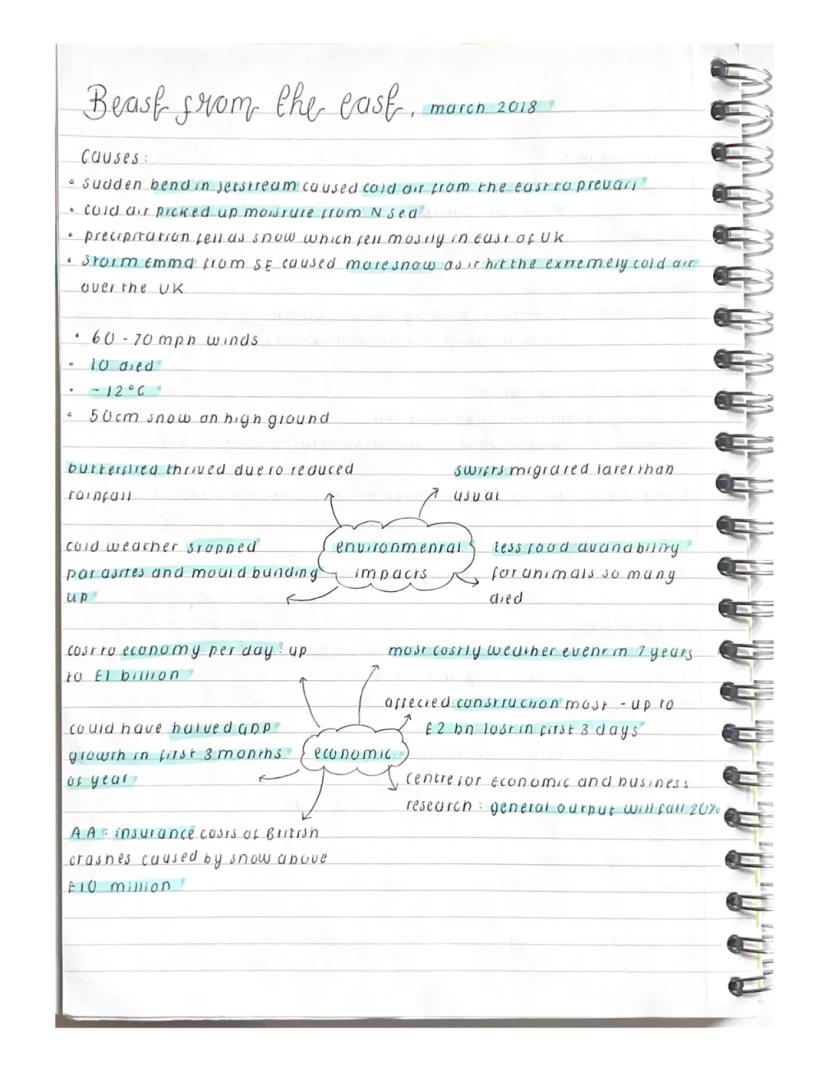 Beast from the east, march 2018
causes:
• sudden bend in jetstream caused cold air from the east to prevail
• cold air picked up moisture from N sea
• precipitation fell as snow which fell mostly in east of UK
• storm Emma from SE caused more snow as it hit the extremely cold air
over the UK
• 60-70 mph winds
• 10 died
• -12°C
• 50cm snow on high ground
butterflied thrived due to reduced
rainfall
swifts migrated later than
usual
cold weather stopped
parasites and mould building
up
environmental
impacts
less food availability
for animals so many
died
cost to economy per day: up
to £1 billion
most costly weather event in 7 years
affected construction most - up to
£2 bn lost in first 3 days
could have halved GDP
growth in first 3 months
of year
economic
centre for economic and business
research: general output will fall 20%
AA: insurance costs of British
crashes caused by snow above
£10 million